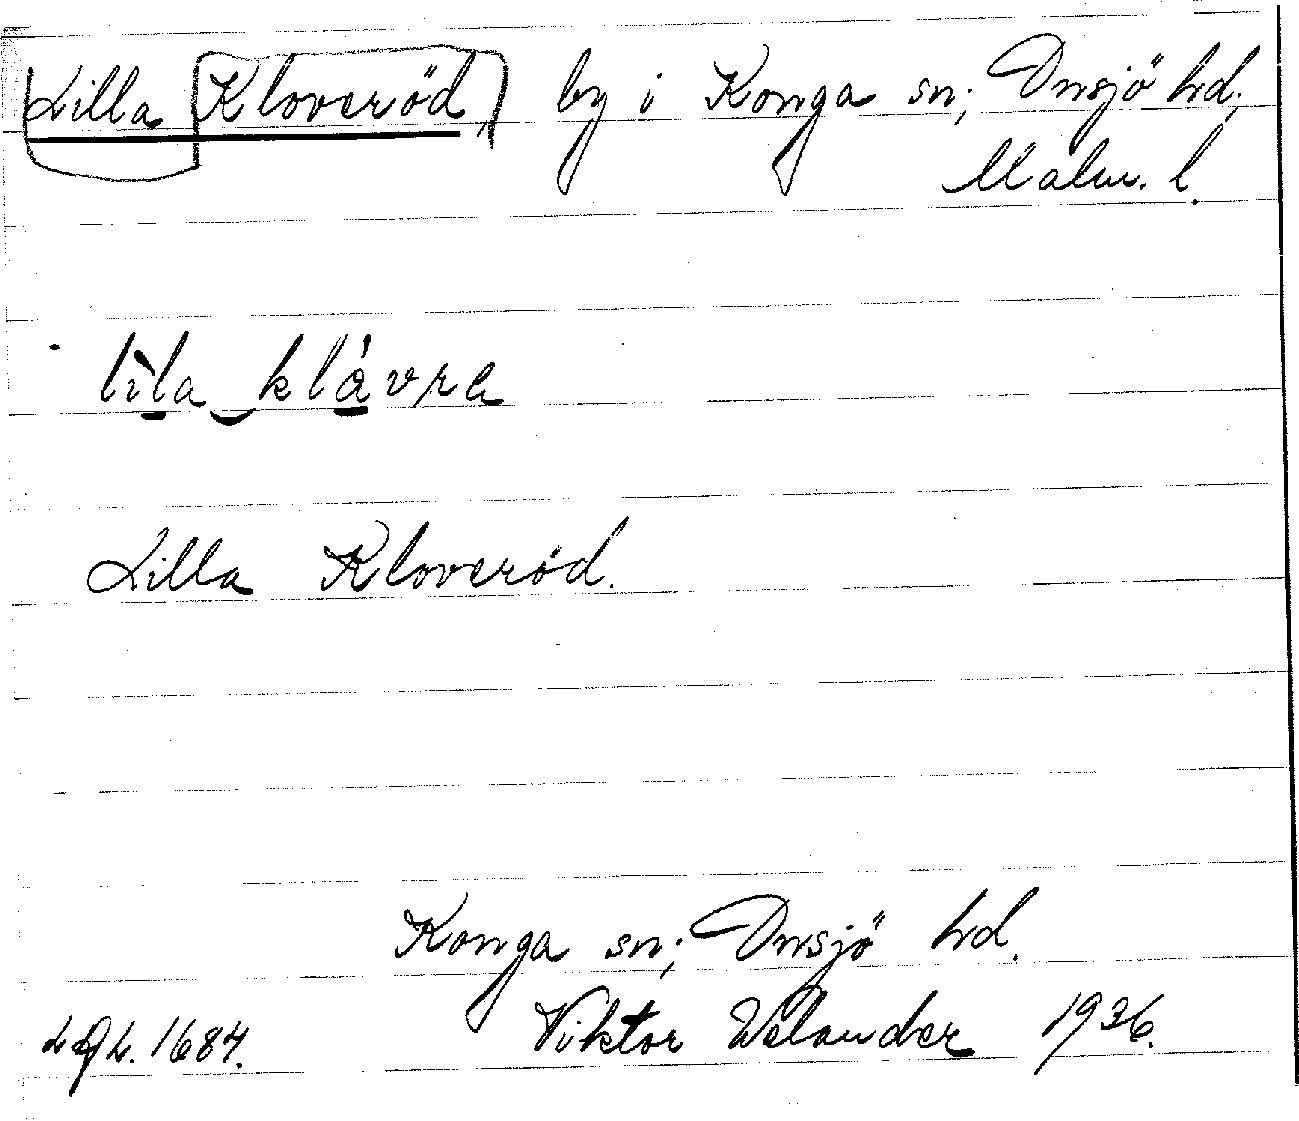 Lilla Kloveröd, by i Konga sn; Onsjö hd.
Malm. l.
lìla klåvra
Lilla Kloveröd.
Konga sn; Onsjö hd.
Viktor Welander 1936.
1684.